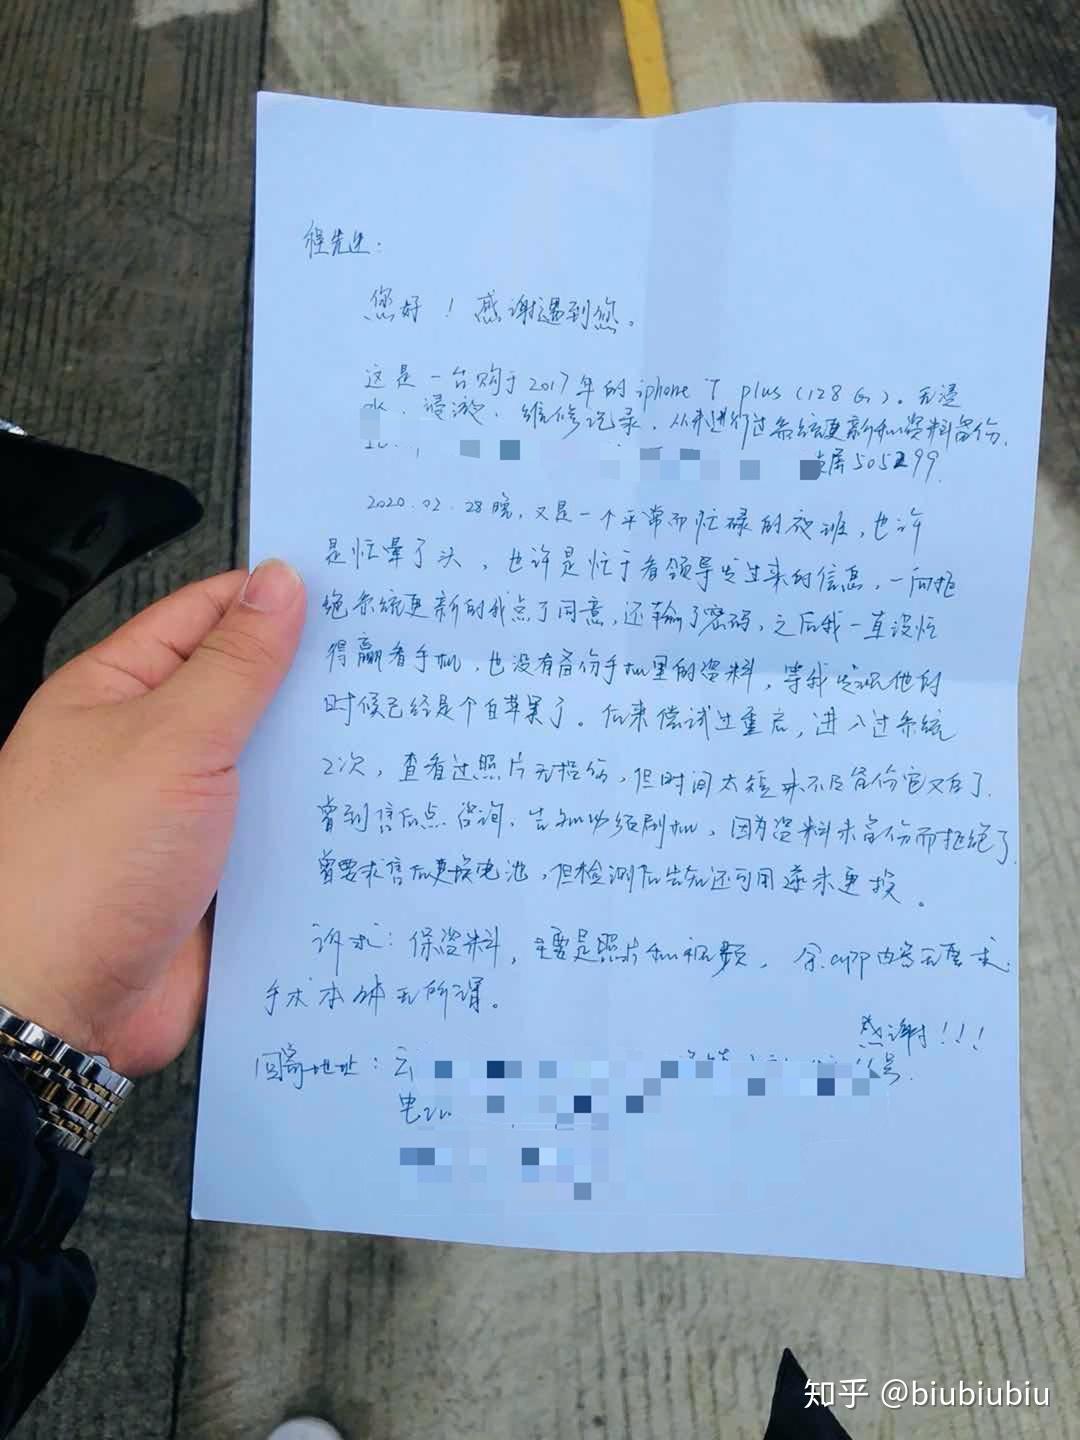 程先生:
您好！感谢遇到您。
这是一台购于2017年的iphone 7 plus(128G)。无浸
水、浸液、维修记录，从未进行过系统更新和资料备份.
屏505299.
2020.02.28晚，又是一个平常而忙碌的夜班，也许
是忙晕了头，也许是忙于看领导发过来的信息，一向拒
绝系统更新的我点了同意，还输了密码，之后我一直没忙
得赢看手机，也没有备份手机里的资料，等我发现他的
时候已经是个白苹果了。后来尝试过重启，进入过系统
2次，查看过照片无损伤，但时间太短来不及备份它又白了.
曾到售后点咨询，告知必须刷机，因为资料未备份而拒绝了.
曾要求售后更换电池，但检测后告知还可用遂未更换。
诉求：保资料，主要是照片和视频，余app内容无要求.
手术本身无所谓。
感谢！！！
回寄地址：云
号.
电
知乎 @biubiubiu